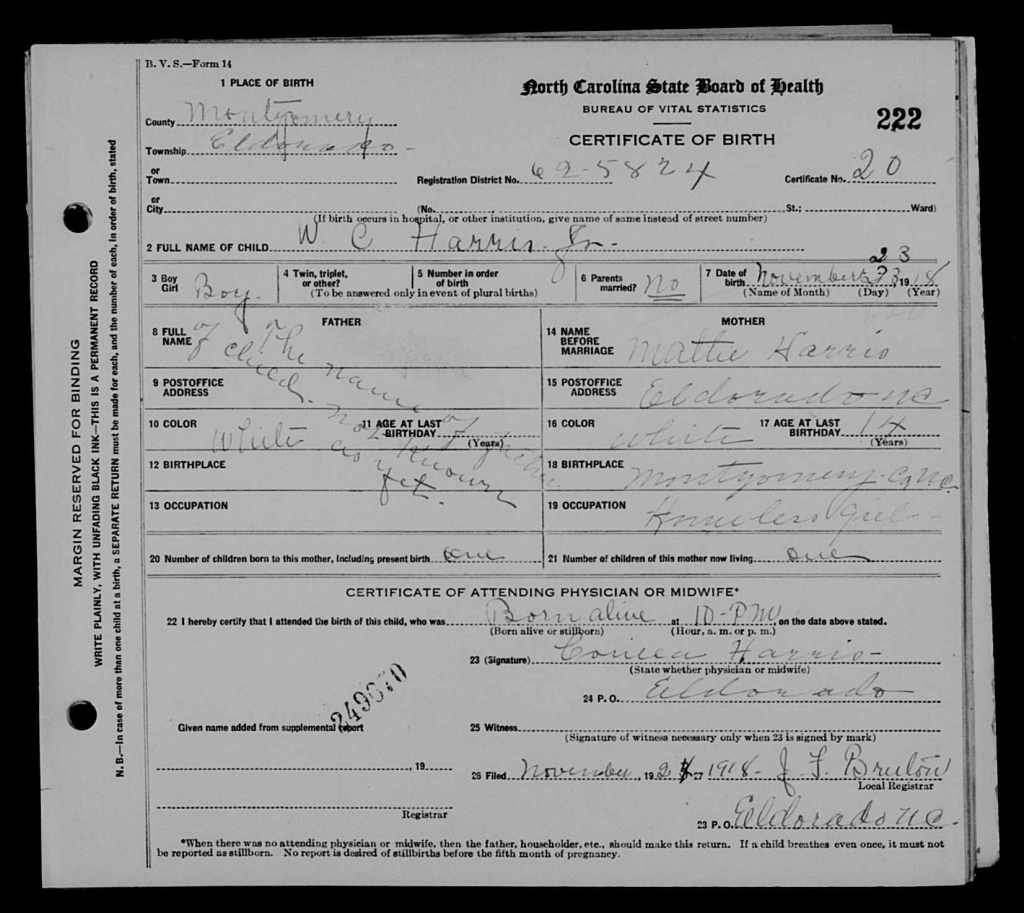 B. V. S.—Form 14
1 PLACE OF BIRTH
North Carolina State Board of Health
BUREAU OF VITAL STATISTICS
222
CERTIFICATE OF BIRTH
County Montgomery
Township Eldorado -
or
Town
Registration District No. 62-5824 Certificate No. 20
or
City (No. St.; Ward)
(If birth occurs in hospital, or other institution, give name of same instead of street number)
2 FULL NAME OF CHILD W. C. Harris. Jr.
23
3 Boy Girl Boy. 4 Twin, triplet, or other? 5 Number in order of birth 6 Parents married? No 7 Date of birth November 23, 1918
(To be answered only in event of plural births) (Name of Month) (Day) (Year)
FATHER
8 FULL NAME
The name of father
of child.
not known
as yet.
9 POSTOFFICE ADDRESS
10 COLOR White 11 AGE AT LAST BIRTHDAY (Years)
12 BIRTHPLACE
13 OCCUPATION
20 Number of children born to this mother, including present birth one
MOTHER
14 NAME BEFORE MARRIAGE Mattie Harris
15 POSTOFFICE ADDRESS Eldorado NC
16 COLOR White 17 AGE AT LAST BIRTHDAY 14 (Years)
18 BIRTHPLACE Montgomery. Co N.C.
19 OCCUPATION
21 Number of children of this mother now living one
CERTIFICATE OF ATTENDING PHYSICIAN OR MIDWIFE*
22 I hereby certify that I attended the birth of this child, who was Born alive at 10-PM, on the date above stated.
(Born alive or stillborn) (Hour, a. m. or p. m.)
23 (Signature) Harris -
(State whether physician or midwife)
24 P. O. Eldorado
249670
Given name added from supplemental report
25 Witness
(Signature of witness necessary only when 23 is signed by mark)
, 19
26 Filed November, 192 27 1918- J. F. Bruton
Local Registrar
Registrar
23 P. O. Eldorado N.C.
*When there was no attending physician or midwife, then the father, householder, etc., should make this return. If a child breathes even once, it must not
be reported as stillborn. No report is desired of stillbirths before the fifth month of pregnancy.
MARGIN RESERVED FOR BINDING
WRITE PLAINLY, WITH UNFADING BLACK INK—THIS IS A PERMANENT RECORD
N. B.—In case of more than one child at a birth, a SEPARATE RETURN must be made for each, and the number of each, in order of birth, stated